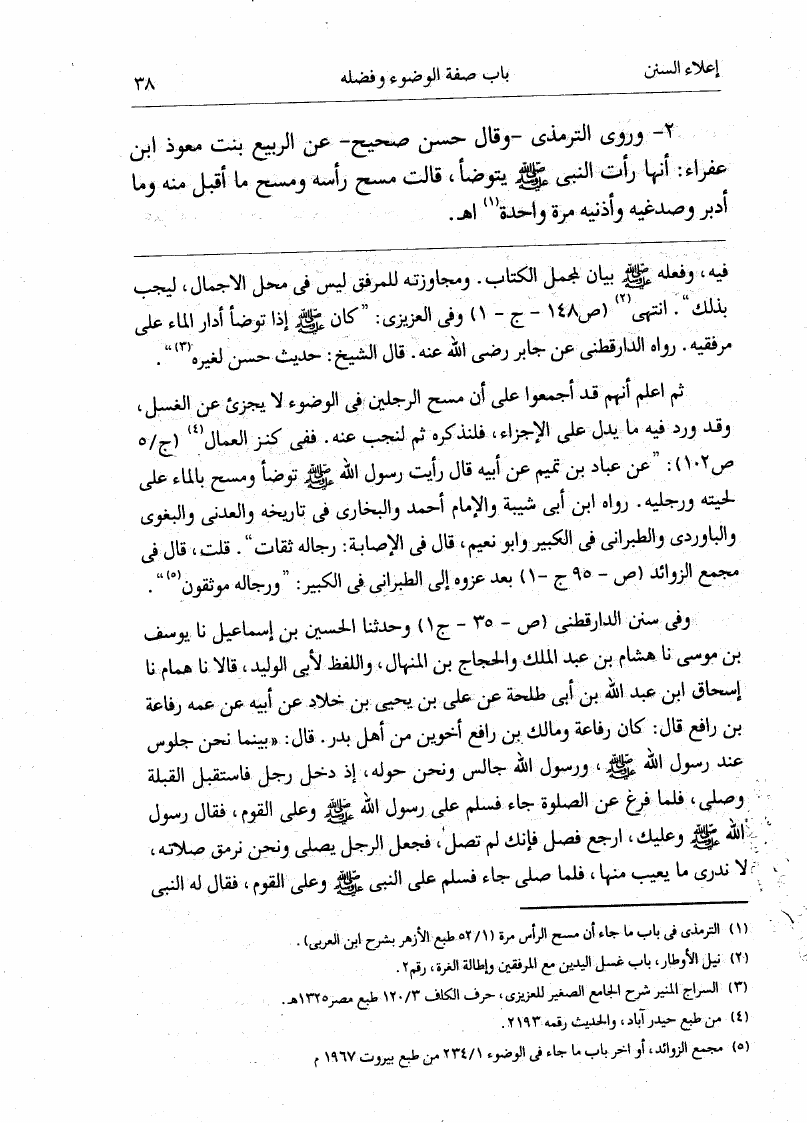 إعلاء السنن
باب صفة الوضوء وفضله
٣٨
٢- وروى الترمذى -وقال حسن صحيح- عن الربيع بنت معوذ ابن
عفراء: أنها رأت النبى ﷺ يتوضأ، قالت مسح رأسه ومسح ما أقبل منه وما
أدبر وصدغيه وأذنيه مرة واحدة(١) اهـ.
فيه، وفعله ﷺ بيان لمجمل الكتاب. ومجاوزته للمرفق ليس فى محل الاجمال، ليجب
بذلك". انتهى(٢) (ص١٤٨ - ج - ١) وفى العزيزى: "كان ﷺ إذا توضأ أدار الماء على
مرفقيه. رواه الدارقطنى عن جابر رضى الله عنه. قال الشيخ: حديث حسن لغيره(٣)".
ثم اعلم أنهم قد أجمعوا على أن مسح الرجلين فى الوضوء لا يجزئ عن الغسل،
وقد ورد فيه ما يدل على الإجزاء، فلنذكره ثم لنجب عنه. ففى كنز العمال(٤) (ج/٥
ص١٠٢): "عن عباد بن تميم عن أبيه قال رأيت رسول الله ﷺ توضأ ومسح بالماء على
لحيته ورجليه. رواه ابن أبى شيبة والإمام أحمد والبخارى فى تاريخه والعدنى والبغوى
والباوردى والطبرانى فى الكبير وابو نعيم، قال فى الإصابة: رجاله ثقات". قلت، قال فى
مجمع الزوائد (ص - ٩٥ ج -١) بعد عزوه إلى الطبرانى فى الكبير: "ورجاله موثقون(٥)".
وفى سنن الدارقطنى (ص - ٣٥ - ج١) وحدثنا الحسين بن إسماعيل نا يوسف
بن موسى نا هشام بن عبد الملك والحجاج بن المنهال، واللفظ لأبى الوليد، قالا نا همام نا
إسحاق ابن عبد الله بن أبى طلحة عن على بن يحيى بن خلاد عن أبيه عن عمه رفاعة
بن رافع قال: كان رفاعة ومالك بن رافع أخوين من أهل بدر. قال: «بينما نحن جلوس
عند رسول الله ﷺ، ورسول الله جالس ونحن حوله، إذ دخل رجل فاستقبل القبلة
وصلى، فلما فرغ عن الصلوة جاء فسلم على رسول الله ﷺ وعلى القوم، فقال رسول
الله ﷺ وعليك، ارجع فصل فإنك لم تصل، فجعل الرجل يصلى ونحن نرمق صلاته،
لا ندرى ما يعيب منها، فلما صلى جاء فسلم على النبى ﷺ وعلى القوم، فقال له النبى
(١) الترمذى فى باب ما جاء أن مسح الرأس مرة (٥٢/١ طبع الأزهر بشرح ابن العربى).
(٢) نيل الأوطار، باب غسل اليدين مع المرفقين وإطالة الغرة، رقم٢.
(٣) السراج المنير شرح الجامع الصغير للعزيزى، حرف الكاف ١٢٠/٣ طبع مصر١٣٢٥هـ.
(٤) من طبع حيدر آباد، والحديث رقمه ٢١٩٣.
(٥) مجمع الزوائد، أو اخر باب ما جاء فى الوضوء ٢٣٤/١ من طبع بيروت ١٩٦٧ م